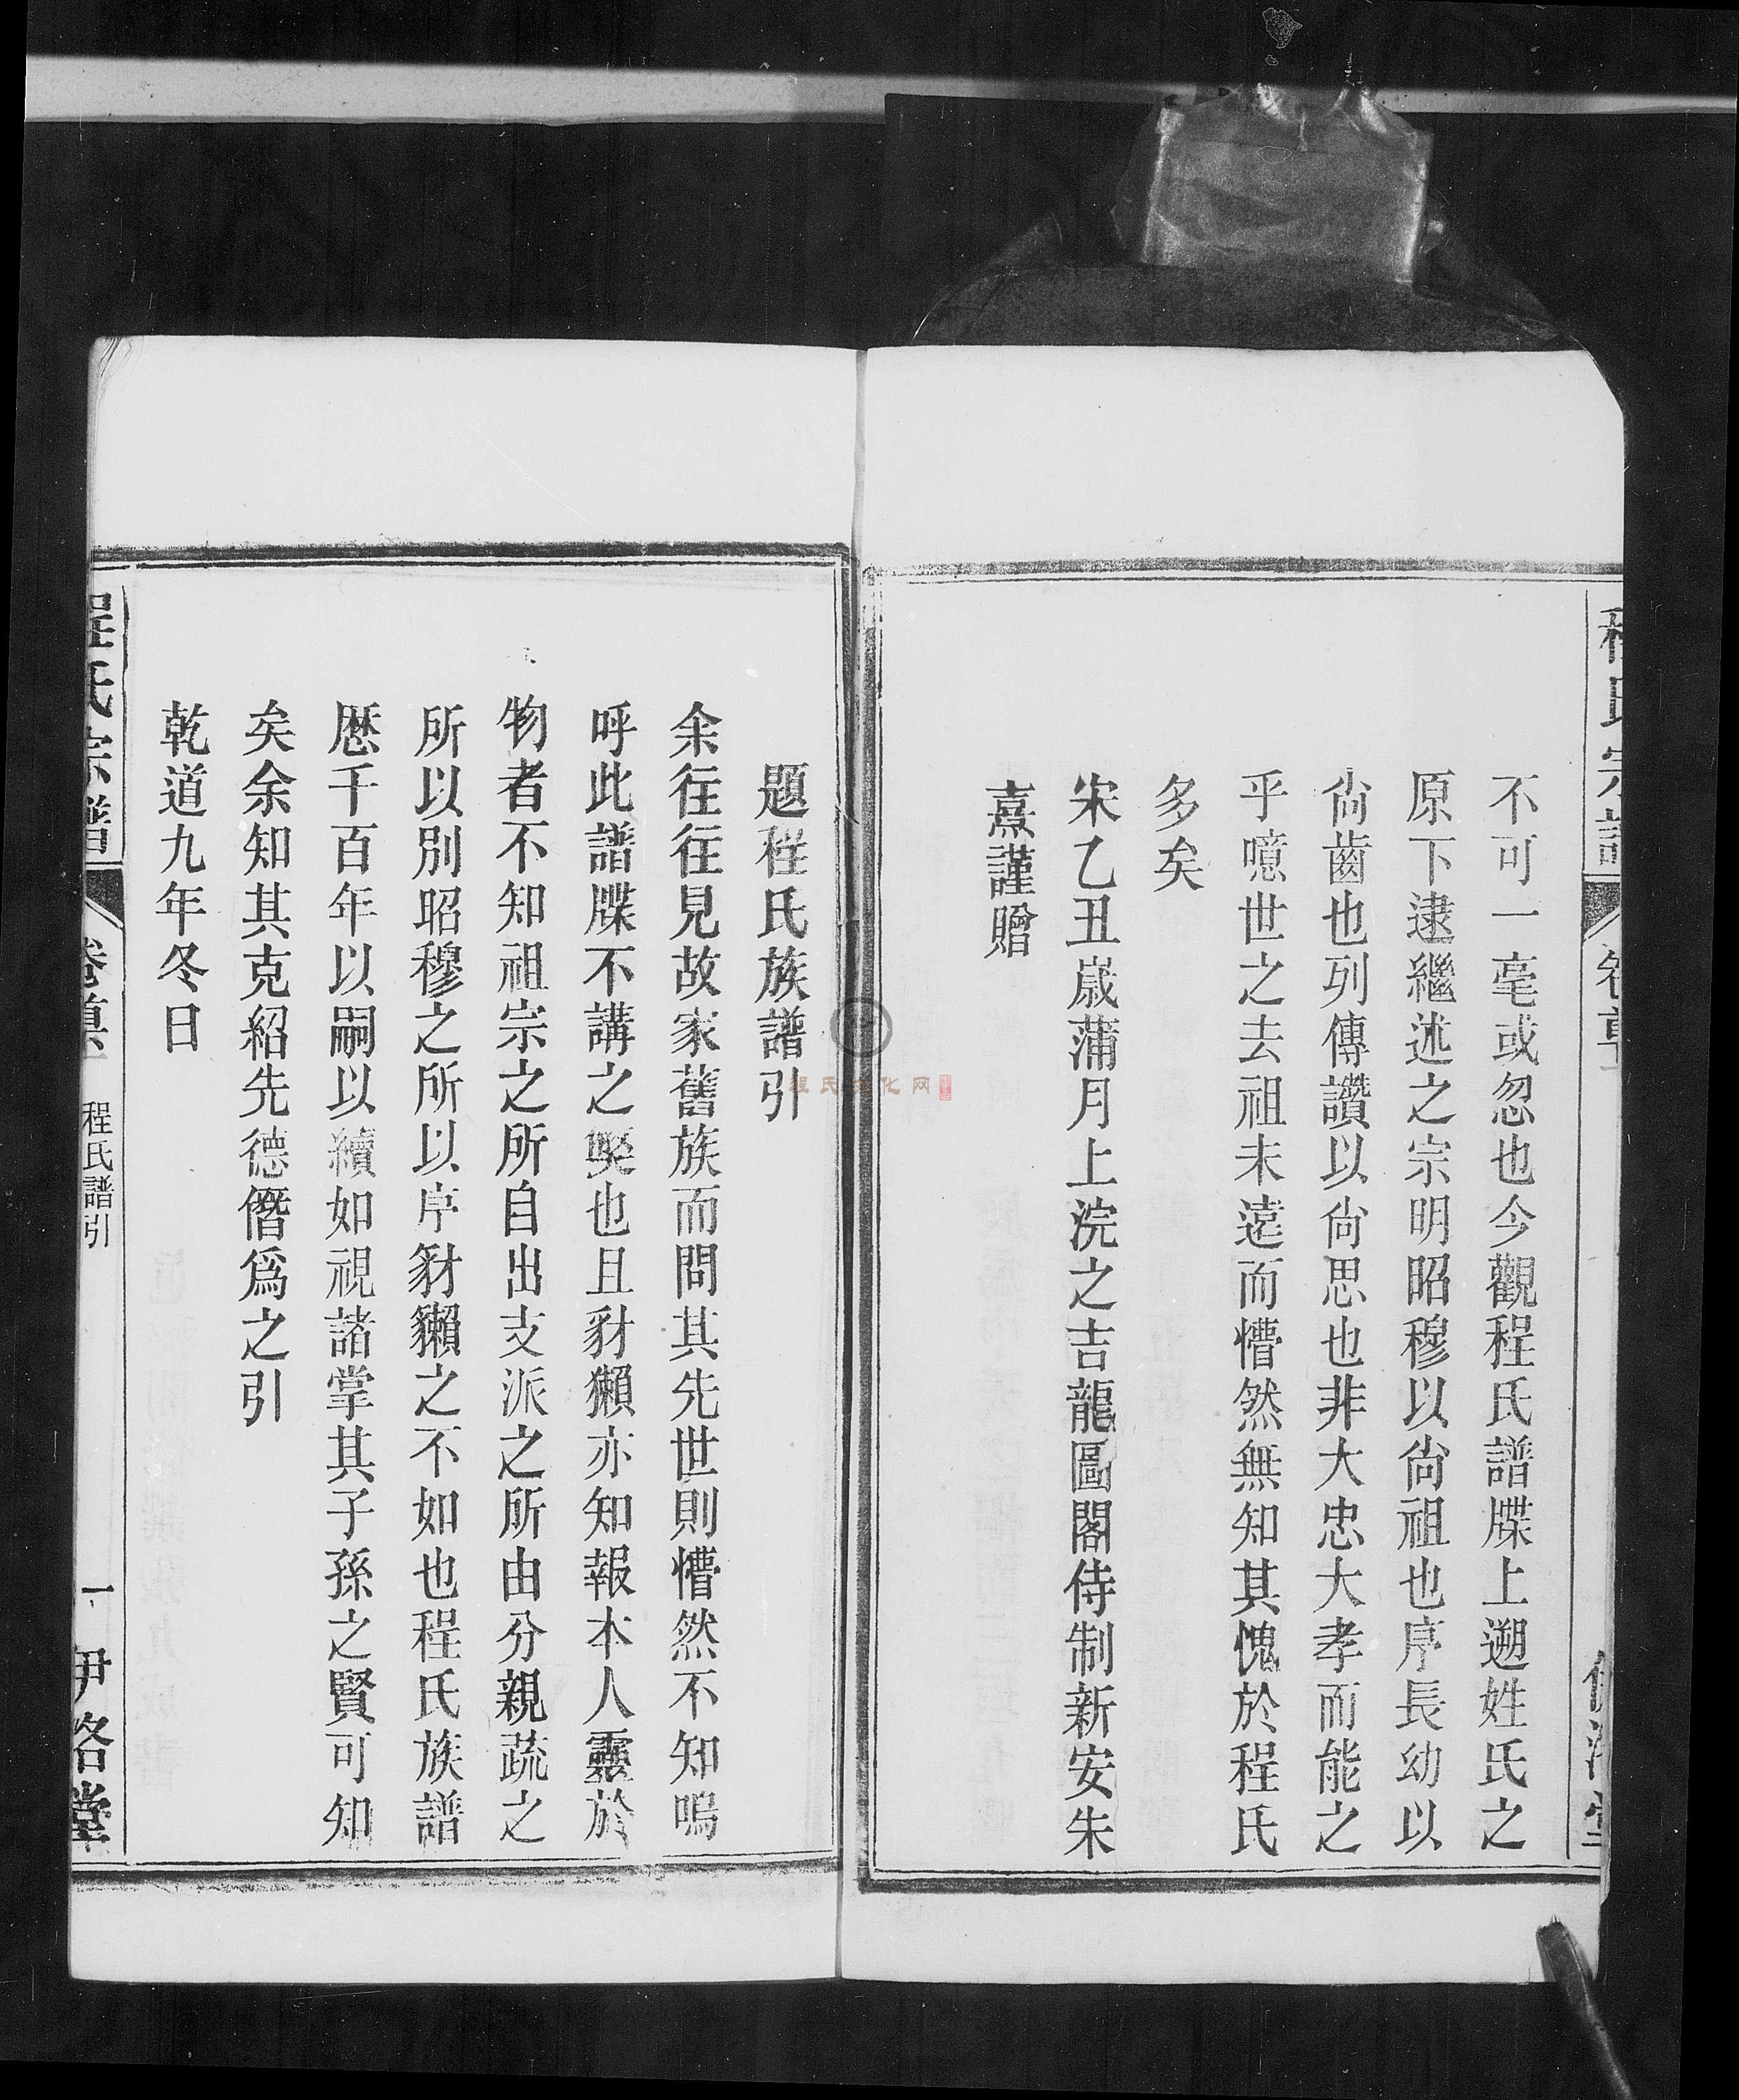 不可一毫或忽也今觀程氏譜牒上遡姓氏之
原下逮繼述之宗明昭穆以尙祖也序長幼以
尙齒也列傳讚以尙思也非大忠大孝而能之
乎噫世之去祖未遠而懵然無知其愧於程氏
多矣
宋乙丑嵗蒲月上浣之吉龍圖閣侍制新安朱
熹謹贈
題程氏族譜引
余徃徃見故家舊族而問其先世則懵然不知嗚
呼此譜牒不講之獘也且豺獺亦知報本人靈於
物者不知祖宗之所自出支派之所由分親疏之
所以別昭穆之所以序豺獺之不如也程氏族譜
歷千百年以嗣以續如視諸掌其子孫之賢可知
矣余知其克紹先德僭爲之引
乾道九年冬日
程氏宗譜
卷
程氏譜引
一
伊洛堂
程氏文化网